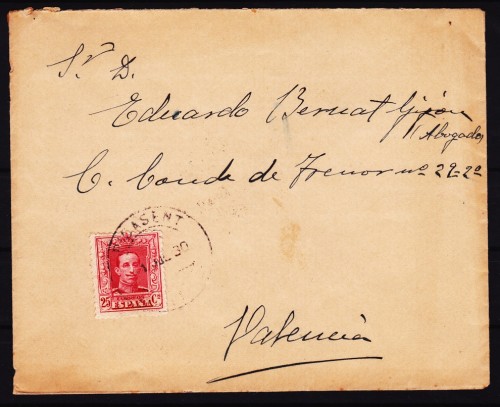 Sr. D.
Eduardo Bernat Gijón
(Abogado)
C. Conde de Trenor nº 29-2º
ASENT
1 JUL 30
25 Cs
ESPAÑA
Valencia